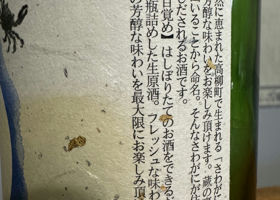 然に恵まれた高柳町で生まれる「さわが
芳醇な味わいをお楽しみ頂けます。蔵の
いることから命名。そんなさわがにが生
だされるお酒です。
目覚め】はしぼりたてのお酒をできるだ
瓶詰めした生原酒。フレッシュな味わ
の芳醇な味わいを最大限にお楽しみ頂